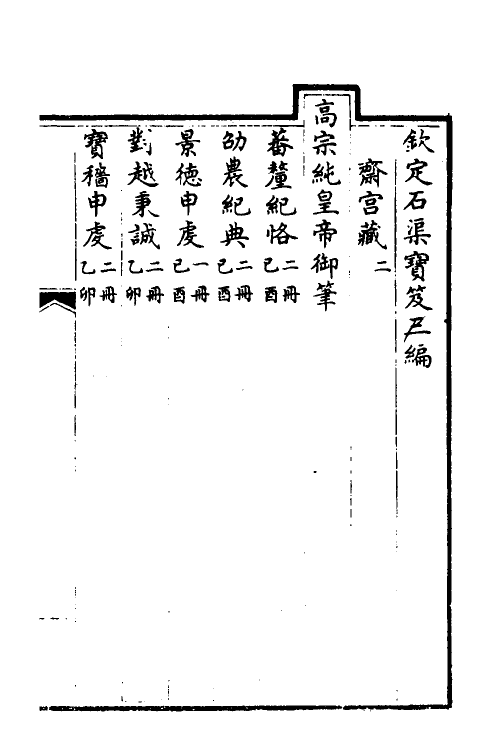 欽定石渠寶笈三編
齋宮藏二
高宗純皇帝御筆
蕃釐紀恪二冊己酉
劭農紀典二冊己酉
景德申虔一冊己酉
對越秉誠二冊乙卯
寶穡申虔二冊乙卯